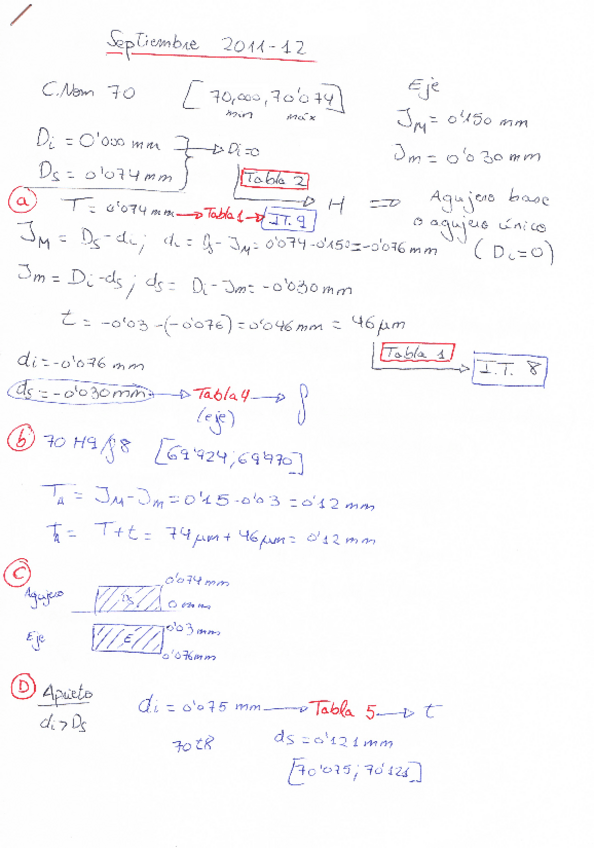 Septiembre 2011-12
C.Nom 70 [70,000, 70'074]
min máx
Eje
JM = 0'150 mm
Jm = 0'030 mm
Di = 0'000 mm
Ds = 0'074 mm
Di=0
Tabla 2
H => Agujero base
o agujero único
(Di=0)
a T = 0'074 mm → Tabla 1 → I.T. 9
JM = Ds-di; di = Ds-JM = 0'074-0'150 = -0'076 mm
Jm = Di-ds; ds = Di-Jm = -0'030 mm
t = -0'03-(-0'076) = 0'046 mm = 46 μm
Tabla 1 → I.T. 8
di = -0'076 mm
ds = -0'030 mm → Tabla 4 → f
(eje)
b 70 H9/f8 [69'924; 69'970]
Ta = JM-Jm = 0'15-0'03 = 0'12 mm
T+t = 74 μm + 46 μm = 0'12 mm
C
Agujero 0'074 mm
0 mm
Eje 0'03 mm
E
0'076 mm
D Aprieto
di > Ds
di = 0'075 mm → Tabla 5 → t
70t8 ds = 0'121 mm
[70'075; 70'121]